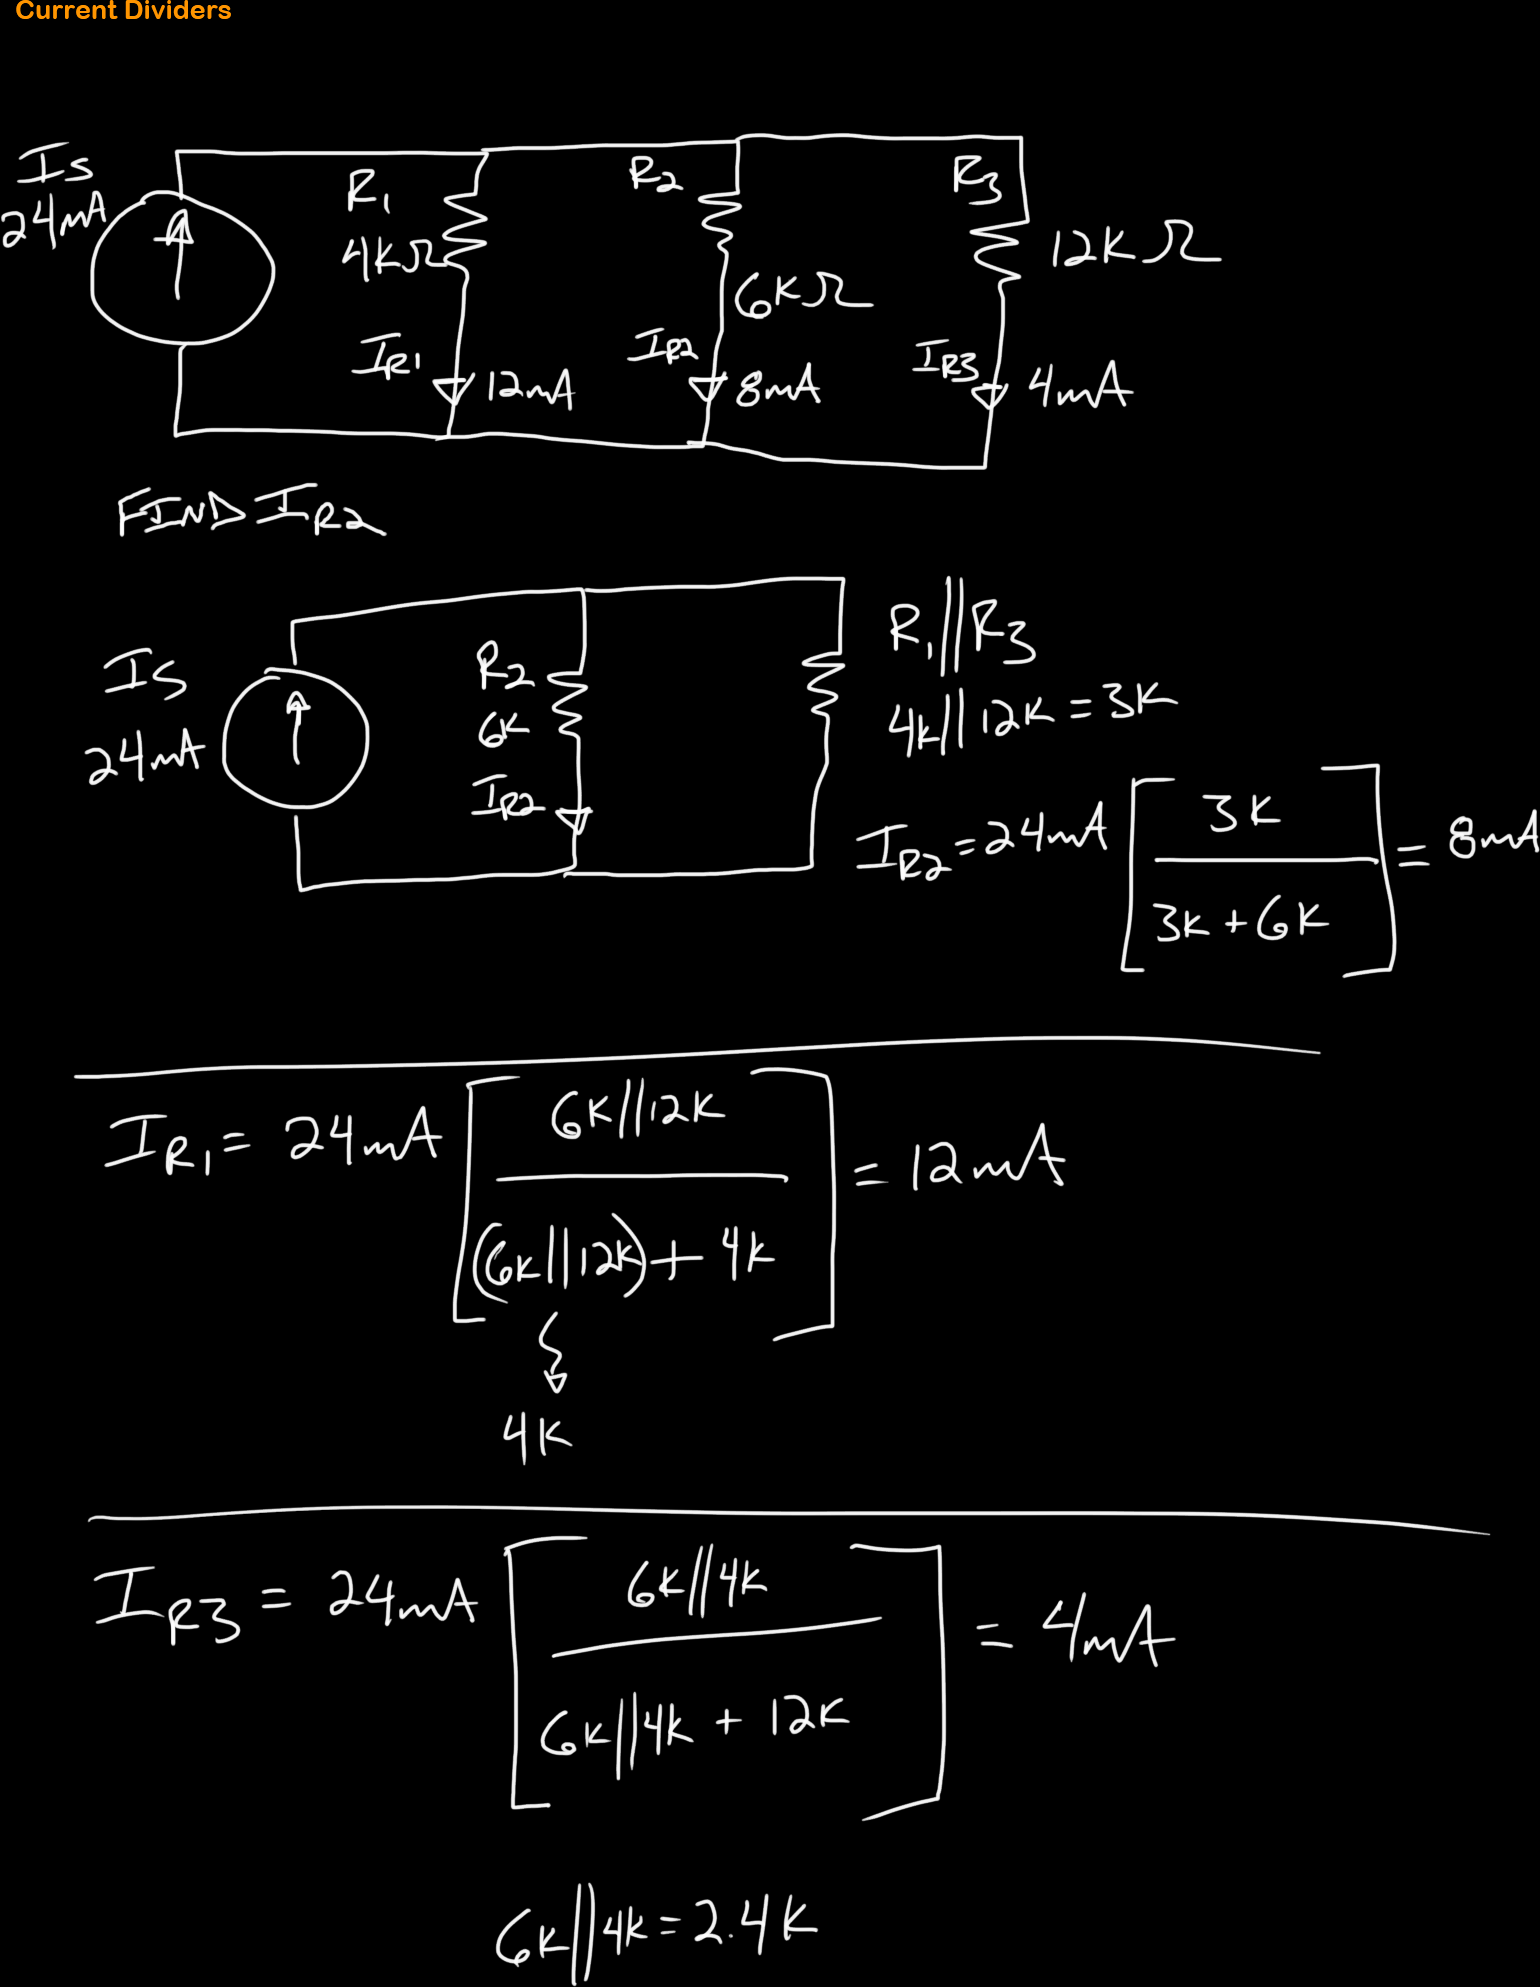 Current Dividers
Is
24mA
R1
4KΩ
IR1
12mA
R2
6KΩ
IR2
8mA
R3
12KΩ
IR3
4mA
FIND IR2
Is
24mA
R2
6K
IR2
R1||R3
4K||12K=3K
IR2=24mA [3K / 3K+6K] = 8mA
IR1= 24mA [6K||12K / (6K||12K)+4K] = 12mA
4K
IR3 = 24mA [6K||4K / 6K||4K + 12K] = 4mA
6K||4K=2.4K